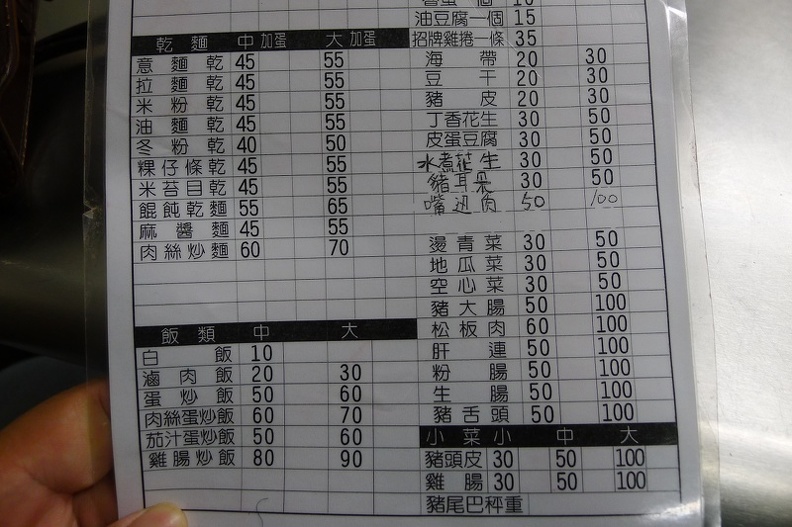 乾麵 中 加蛋 大 加蛋
意麵乾 45 55
拉麵乾 45 55
米粉乾 45 55
油麵乾 45 55
冬粉乾 40 50
粿仔條乾 45 55
米苔目乾 45 55
餛飩乾麵 55 65
麻醬麵 45 55
肉絲炒麵 60 70
飯類 中 大
白飯 10
滷肉飯 20 30
蛋炒飯 50 60
肉絲蛋炒飯 60 70
茄汁蛋炒飯 50 60
雞腸炒飯 80 90
油豆腐一個 15
招牌雞捲一條 35
海帶 20 30
豆干 20 30
豬皮 20 30
丁香花生 30 50
皮蛋豆腐 30 50
水煮花生 30 50
豬耳朵 30 50
嘴边肉 50 100
燙青菜 30 50
地瓜菜 30 50
空心菜 30 50
豬大腸 50 100
松板肉 60 100
肝連 50 100
粉腸 50 100
生腸 50 100
豬舌頭 50 100
小菜 小 中 大
豬頭皮 30 50 100
雞腸 30 50 100
豬尾巴秤重